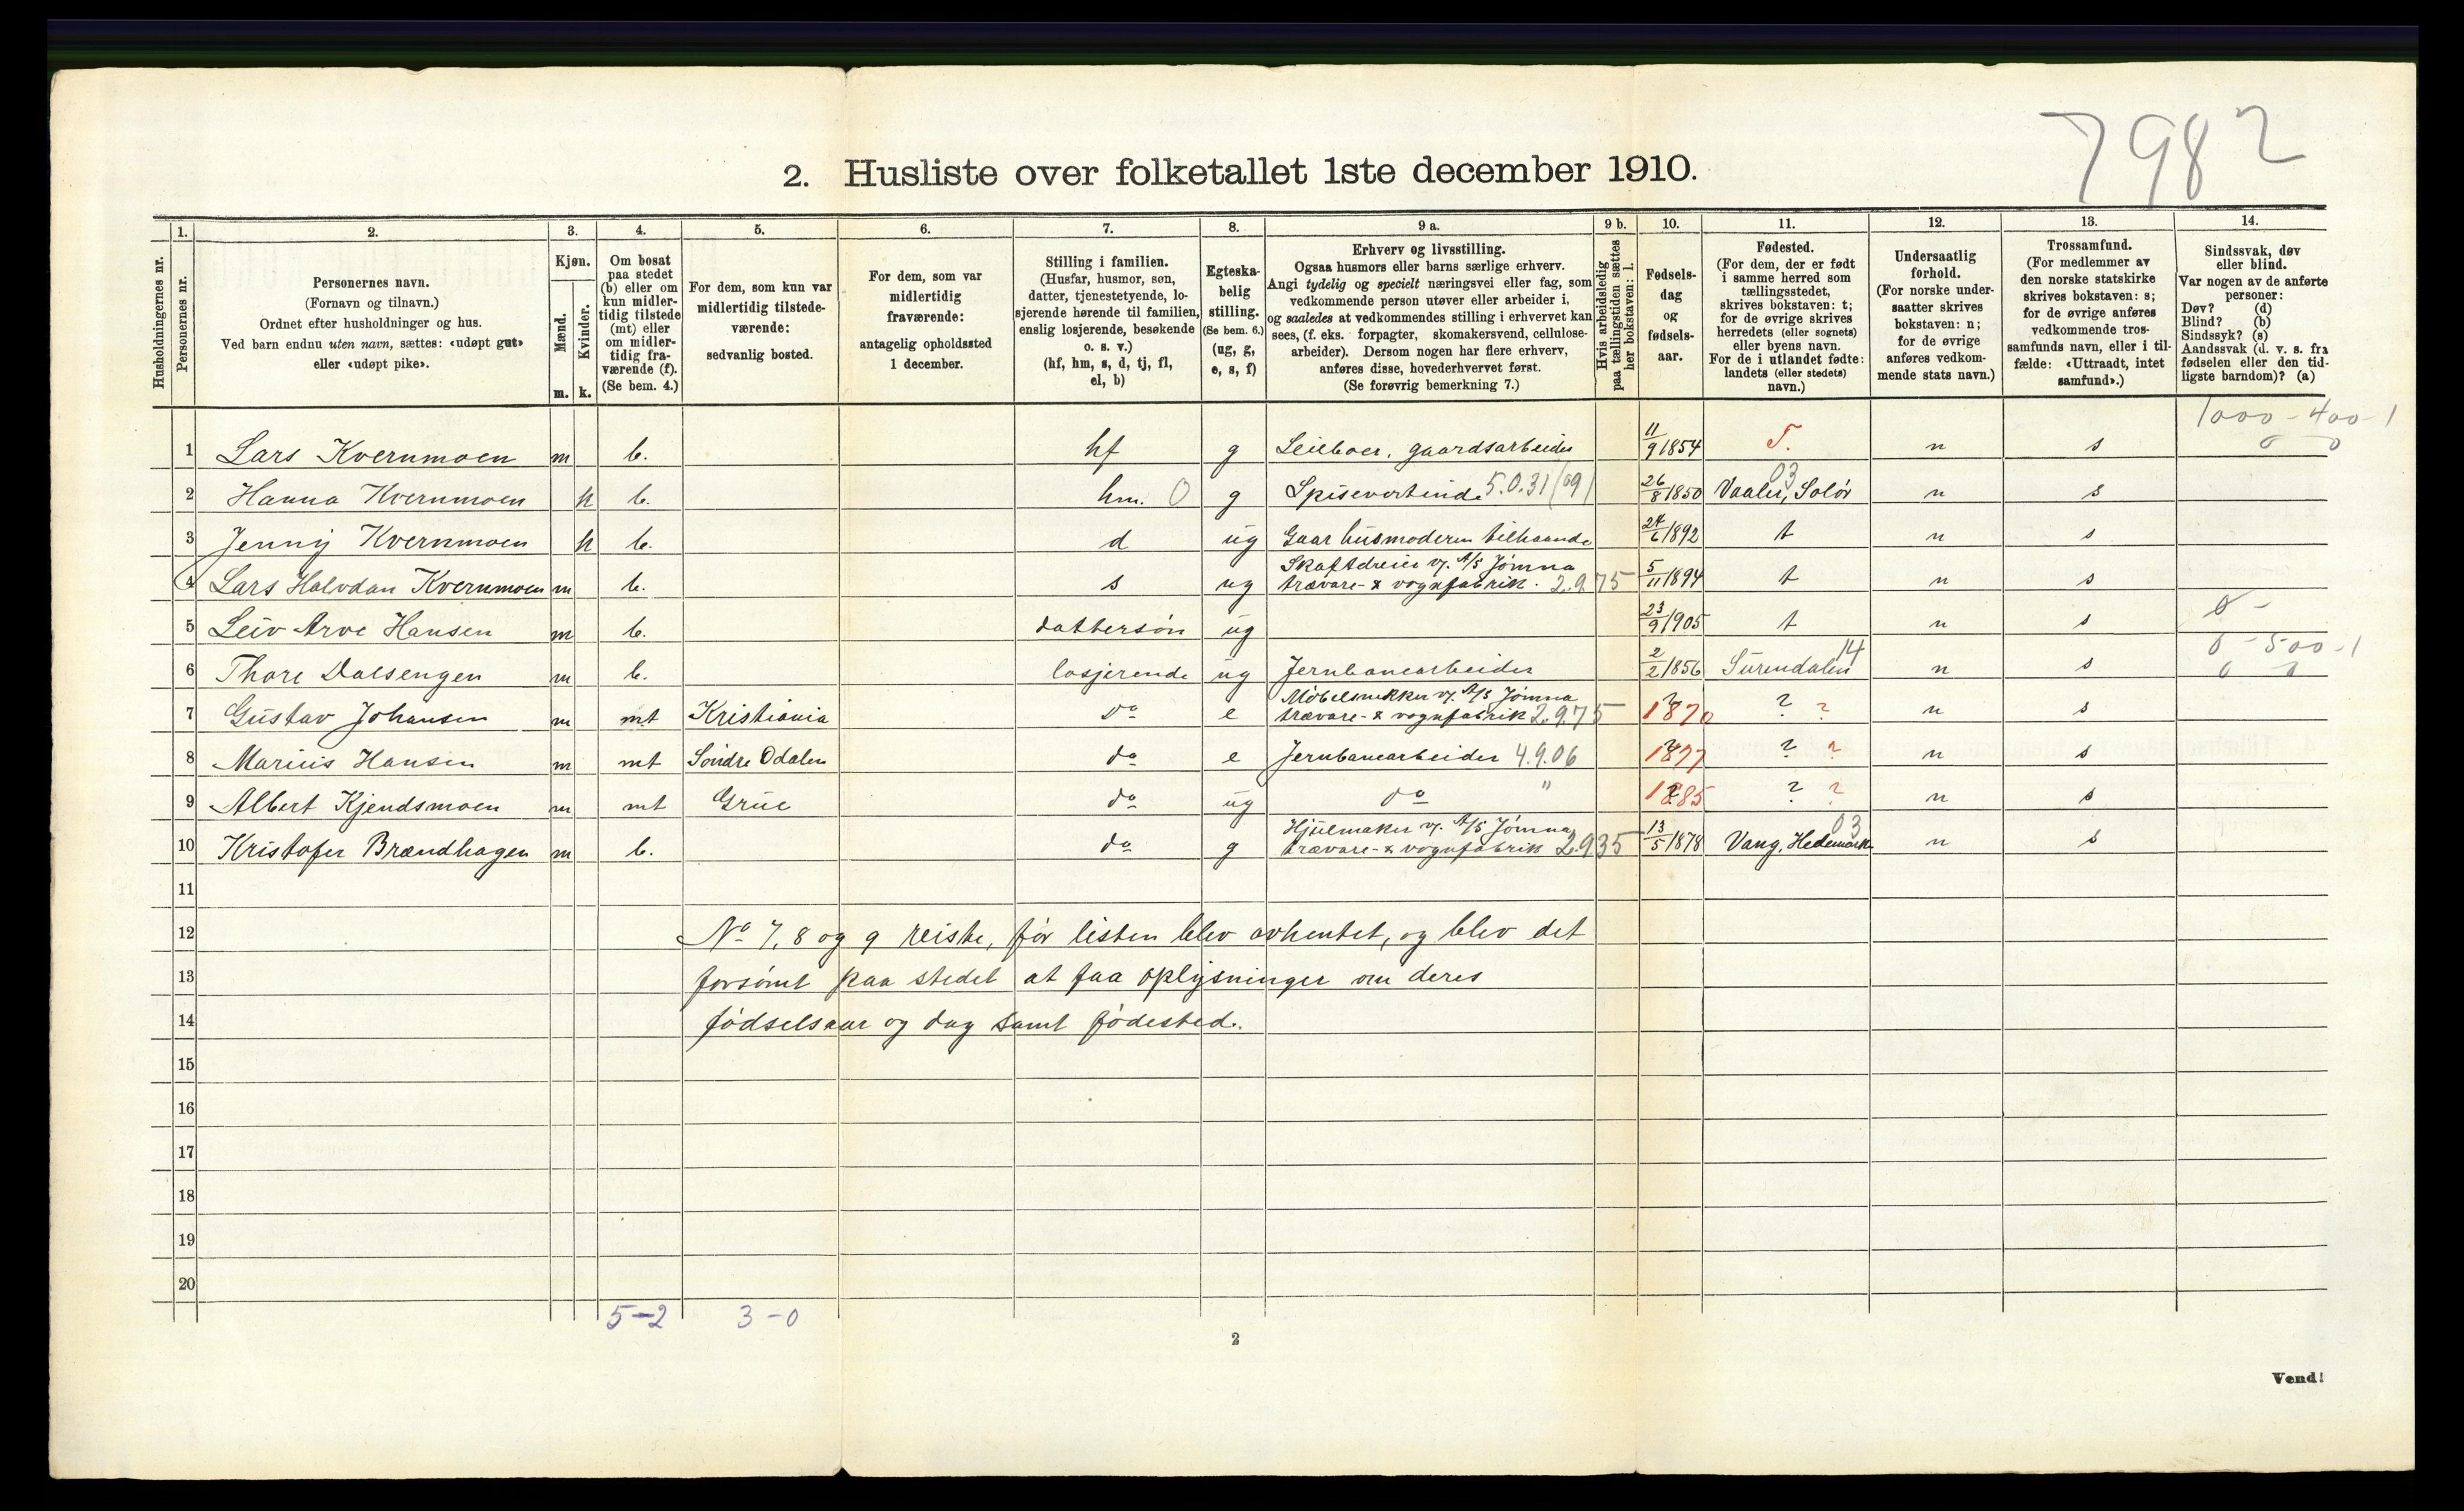 7982
2. Husliste over folketallet 1ste december 1910.
Husholdningernes nr.
1.
Personernes nr.
2.
Personernes navn.
(Fornavn og tilnavn.)
Ordnet efter husholdninger og hus.
Ved barn endnu uten navn, sættes: «udøpt gut»
eller «udøpt pike».
3.
Kjøn.
Mænd.
Kvinder.
m. k.
4.
Om bosat
paa stedet
(b) eller om
kun midler-
tidig tilstede
(mt) eller
om midler-
tidig fra-
værende (f).
(Se bem. 4.)
5.
For dem, som kun var
midlertidig tilstede-
værende:
sedvanlig bosted.
6.
For dem, som var
midlertidig
fraværende:
antagelig opholdssted
1 december.
7.
Stilling i familien.
(Husfar, husmor, søn,
datter, tjenestetyende, lo-
sjerende hørende til familien,
enslig losjerende, besøkende
o. s. v.)
(hf, hm, s, d, tj, fl,
el, b)
8.
Egteska-
belig
stilling.
(Se bem. 6.)
(ug, g,
e, s, f)
9 a.
Erhverv og livsstilling.
Ogsaa husmors eller barns særlige erhverv.
Angi tydelig og specielt næringsvei eller fag, som
vedkommende person utøver eller arbeider i,
og saaledes at vedkommendes stilling i erhvervet kan
sees, (f. eks. forpagter, skomakersvend, cellulose-
arbeider). Dersom nogen har flere erhverv,
anføres disse, hovederhvervet først.
(Se forøvrig bemerkning 7.)
9 b.
Hvis arbeidsledig
paa tællingstiden sættes
her bokstaven: l.
10.
Fødsels-
dag
og
fødsels-
aar.
11.
Fødested.
(For dem, der er født
i samme herred som
tællingsstedet,
skrives bokstaven: t;
for de øvrige skrives
herredets (eller sognets)
eller byens navn.
For de i utlandet fødte:
landets (eller stedets)
navn.)
12.
Undersaatlig
forhold.
(For norske under-
saatter skrives
bokstaven: n;
for de øvrige
anføres vedkom-
mende stats navn.)
13.
Trossamfund.
(For medlemmer av
den norske statskirke
skrives bokstaven: s;
for de øvrige anføres
vedkommende tros-
samfunds navn, eller i til-
fælde: «Uttraadt, intet
samfund».)
14.
Sindssvak, døv
eller blind.
Var nogen av de anførte
personer:
Døv? (d)
Blind? (b)
Sindssyk? (s)
Aandssvak (d. v. s. fra
fødselen eller den tid-
ligste barndom)? (a)
1000 - 400 - 1
1 Lars Kvernmoen m b. hf g Leieboer, gaardsarbeider 11/9 1854 T. n s 0 0
2 Hanna Kvernmoen k b. hm. 0 g Spisevertinde 5.0.31 (09) 26/8 1850 Vaaler, Solør 03 n s
3 Jenny Kvernmoen k b. d ug Gaar husmoderen tilhaande 24/6 1892 t n s
4 Lars Halvdan Kvernmoen m b. s ug Skaftdreier v. A/S Jømna
trævare- & vognfabrik. 2.9.75 5/11 1894 t n s
5 Leiv Arve Hansen m b. dattersøn ug 23/9 1905 t n s 0 -
0 - 500 - 1
6 Thore Dalsengen m b. losjerende ug Jernbanearbeider 2/2 1856 Surendalen 14 n s 0 0
7 Gustav Johansen m mt Kristiania do e Møbelsnekker v. A/S Jømna
trævare- & vognfabrik 2.9.75 ? 1870 ? ? n s
8 Marius Hansen m mt Søndre Odalen do e Jernbanearbeider 4.9.06 ? 1877 ? ? n s
9 Albert Kjendsmoen m mt Grue do ug do " ? 1885 ? ? n s
10 Kristofer Brændhagen m b. do g Hjulmaker v. A/S Jømna
trævare- & vognfabrik 2.935 13/5 1878 Vang, Hedemark 03 n s
11
12 No 7, 8 og 9 reiste, før listen blev avhentet, og blev det
13 forsømt paa stedet at faa oplysninger om deres
14 fødselsaar og dag samt fødested.
15
16
17
18
19
20
5-2 3-0
2
Vend!